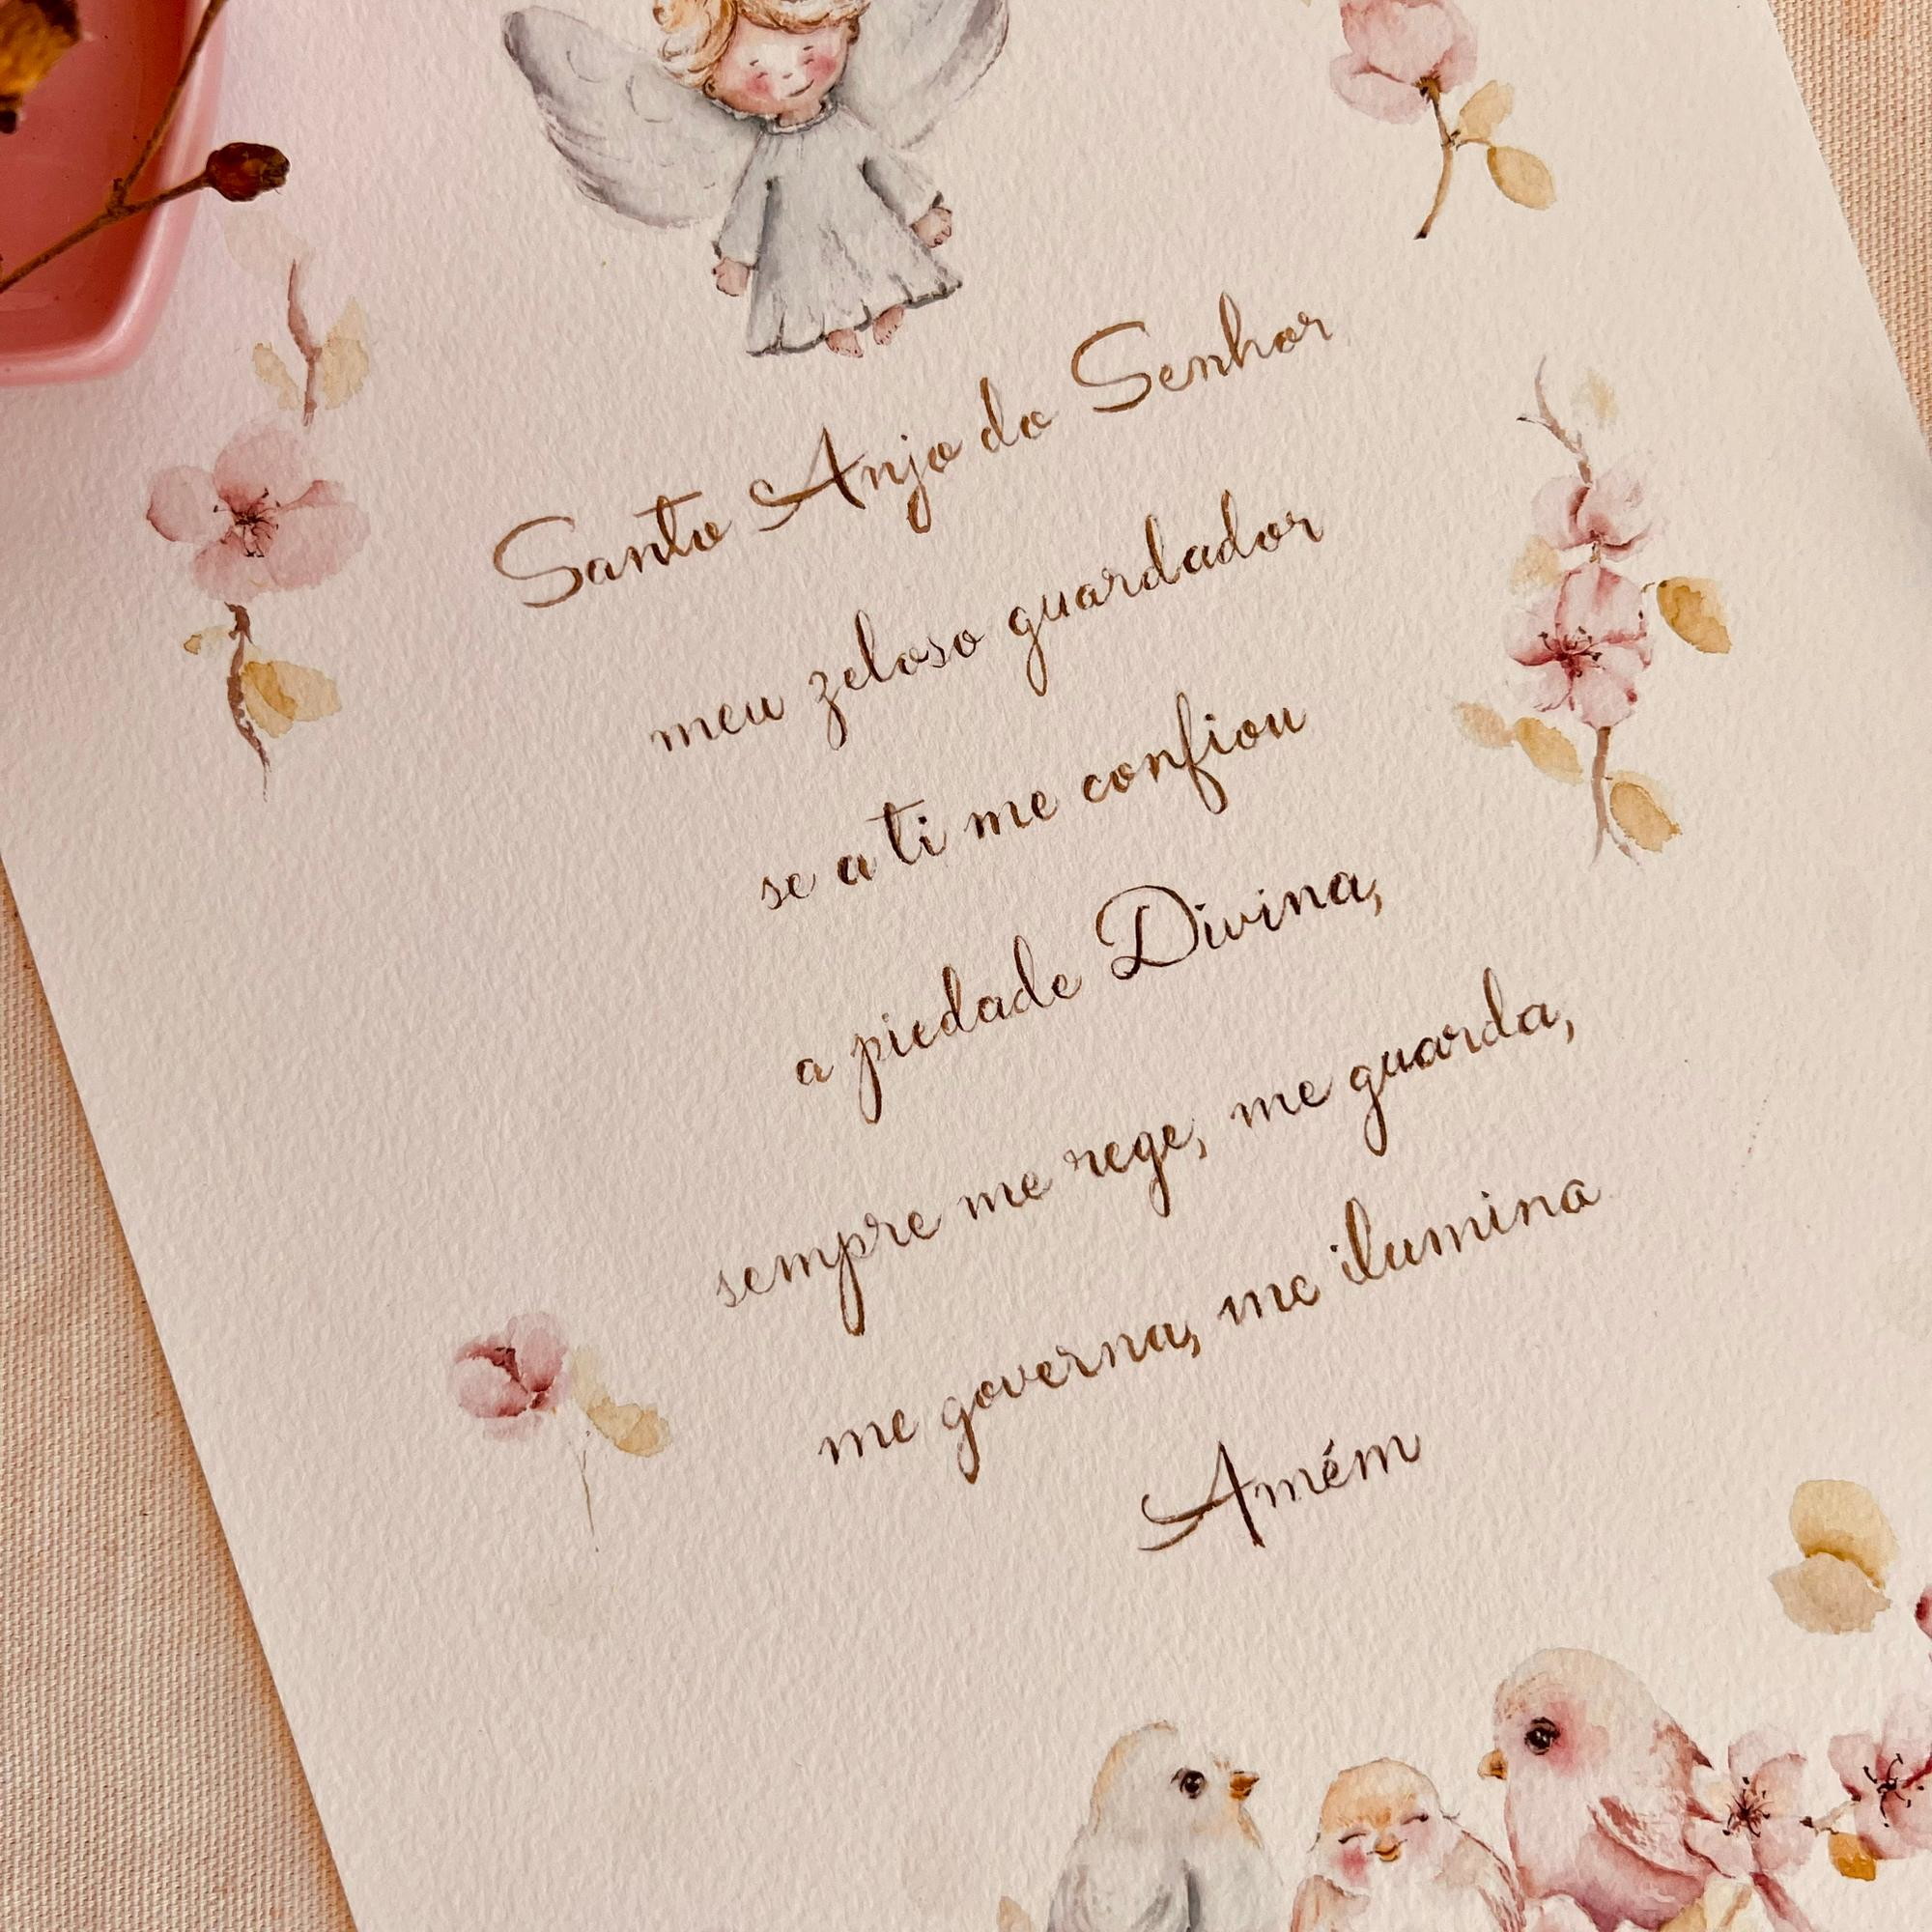 Santo Anjo do Senhor
meu zeloso guardador
se a ti me confiou
a piedade Divina,
sempre me rege, me guarda,
me governa, me ilumina
Amém